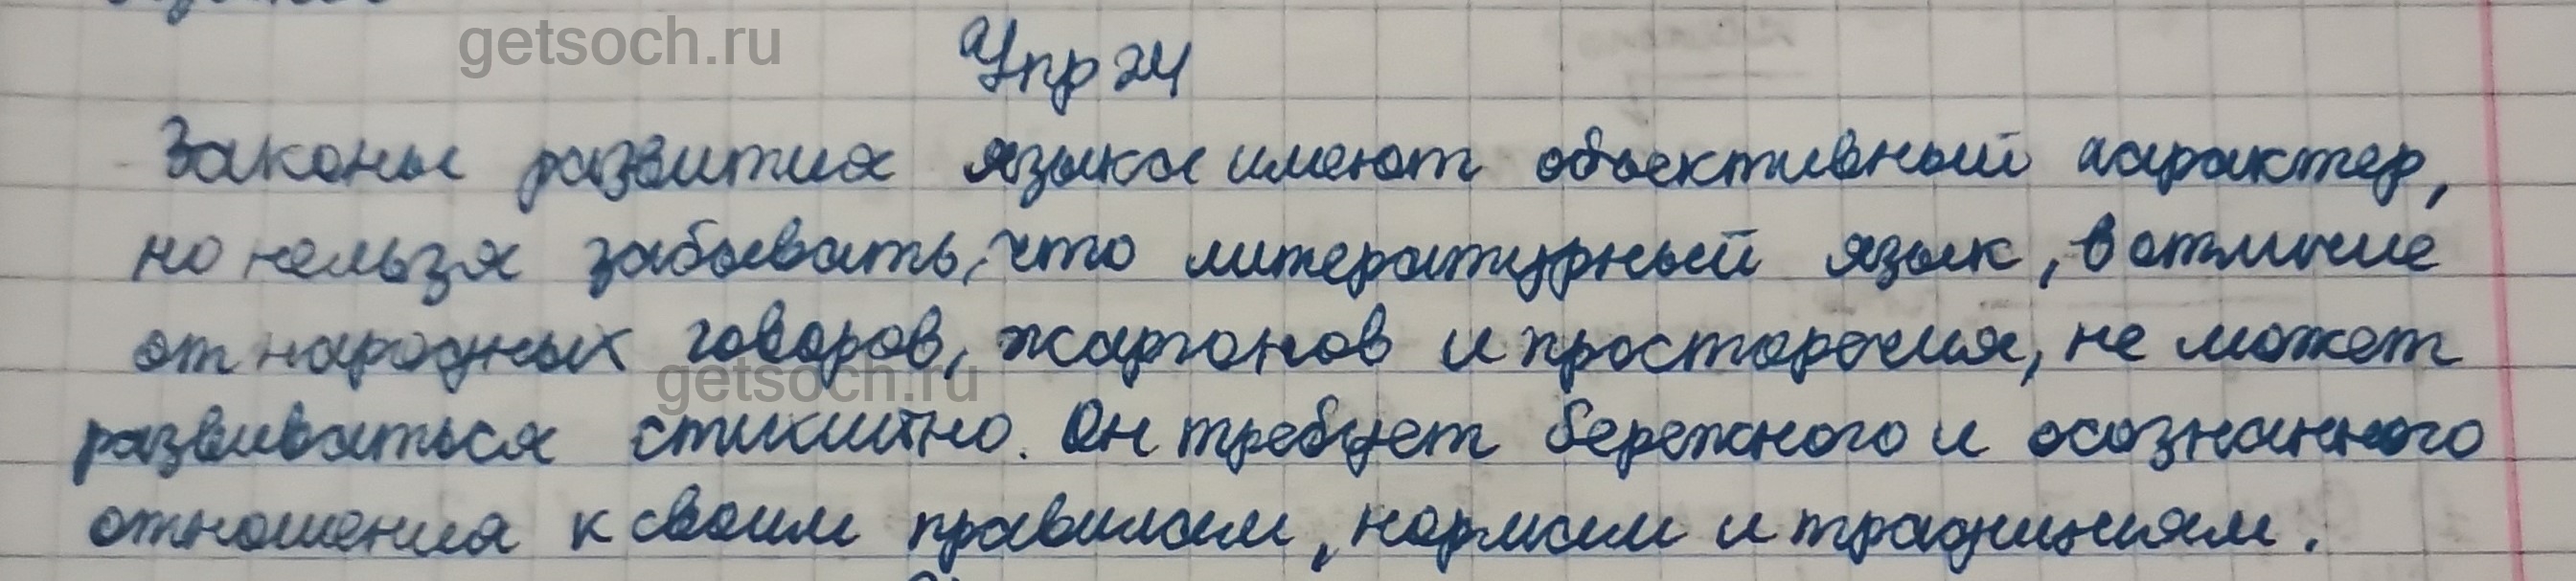 getsoch.ru
Упр 24
Законы развития языка имеют объективный характер,
но нельзя забывать, что литературный язык, в отличие
от народных говоров, жаргонов и просторечия, не может
getsoch.ru
развиваться стихийно. Он требует бережного и осознанного
отношения к своим правилам, нормам и традициям.